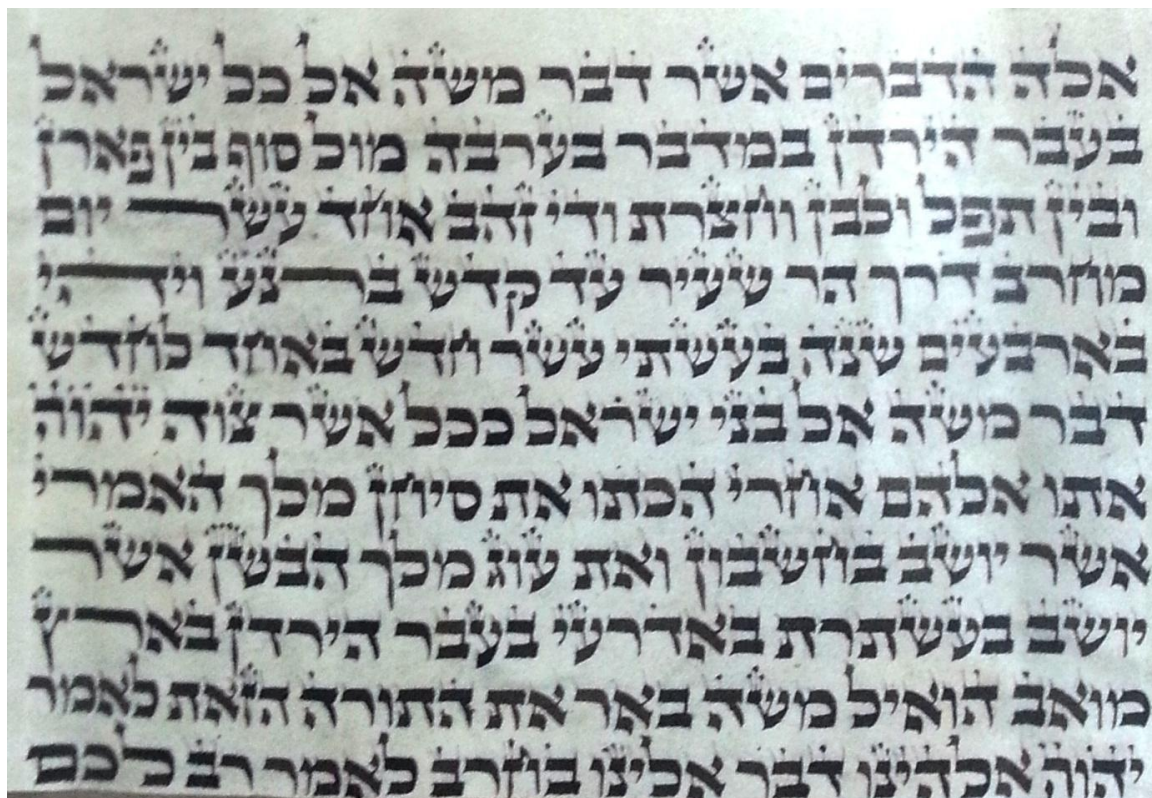 אלה הדברים אשר דבר משה אל כל ישראל
בעבר הירדן במדבר בערבה מול סוף בין פארן
ובין תפל ולבן וחצרת ודי זהב אחד עשר יום
מחרב דרך הר שעיר עד קדש ברנע ויהי
בארבעים שנה בעשתי עשר חדש באחד לחדש
דבר משה אל בני ישראל ככל אשר צוה יהוה
אתו אלהם אחרי הכתו את סיחן מלך האמרי
אשר יושב בחשבון ואת עוג מלך הבשן אשר
יושב בעשתרת באדרעי בעבר הירדן בארץ
מואב הואיל משה באר את התורה הזאת לאמר
יהוה אלהינו דבר אלינו בחרב לאמר רב לכם